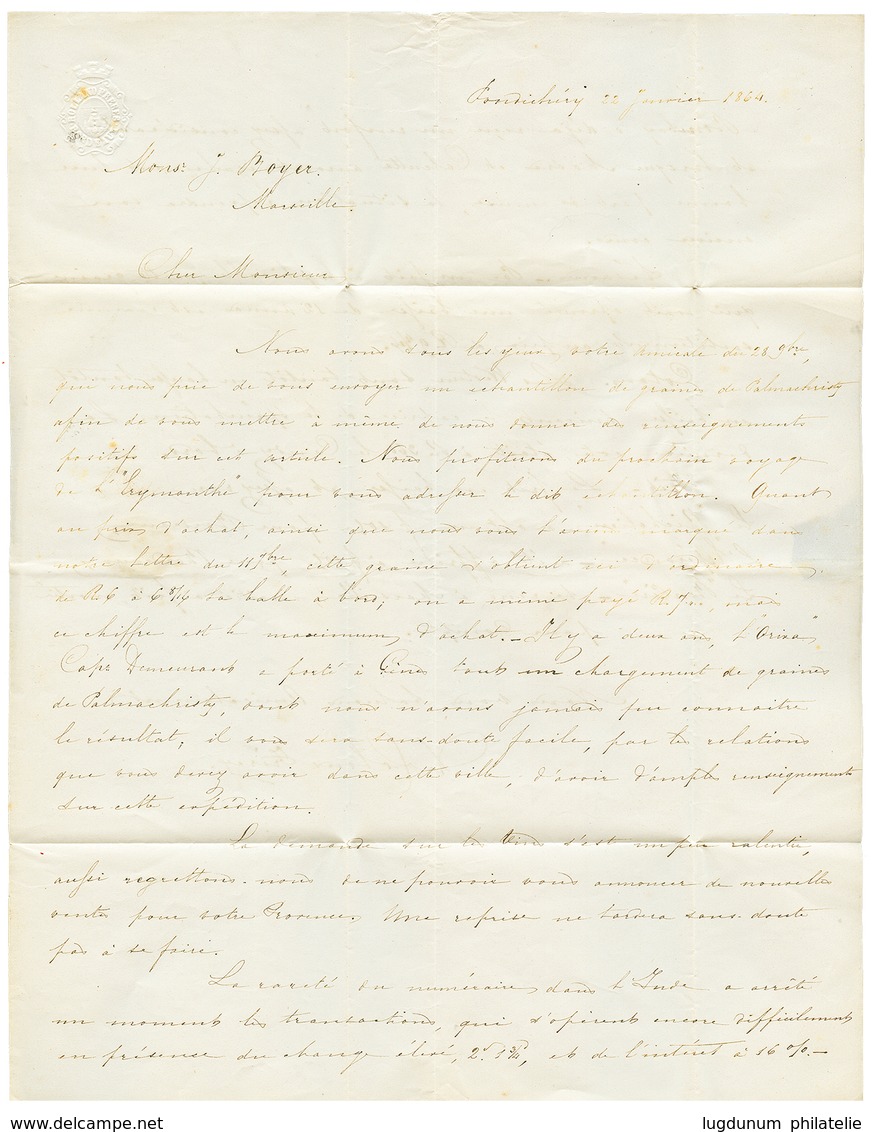 Pondichéry 22 Janvier 1864.
Monsr. J. Boyer.
Marseille.
Cher Monsieur
Nous avons sous les yeux votre amicale du 28 9bre,
qui nous prie de vous envoyer un échantillon de graines de Palmachristy
afin de vous mettre à même de nous donner des renseignements
positifs sur cet article. Nous profiterons du prochain voyage
de L'"Erymanthe" pour vous adresser le dit échantillon. Quant
au prix d'achat, ainsi que nous vous l'avons marqué dans
notre lettre du 11 7bre, cette graine s'obtient ici d'ordinaire
de R. 6 à 6 8/16 la balle à bord; on a même payé R. 7 , mais
ce chiffre est le maximum d'achat. - Il y a deux ans, L'"Orixa"
Capne Demeurant a porté à Gênes tout un chargement de graines
de Palmachristy, dont nous n'avons jamais pu connaitre
le résultat; il vous sera sans-doute facile, par les relations
que vous devez avoir dans cette ville, d'avoir d'amples renseignements
sur cette expédition.
La demande sur les vins s'est un peu ralentie,
aussi regrettons-nous de ne pouvoir vous annoncer de nouvelles
ventes pour votre Provence. Une reprise ne tardera sans-doute
pas à se faire.
La rareté du numéraire dans l'Inde a arrêté
un moment les transactions, qui s'opèrent encore difficilement
en présence du change élevé, 2. 1 3/4, et de l'intérêt à 16 o/o. -
www.delcampe.net
lugdunum philatelie